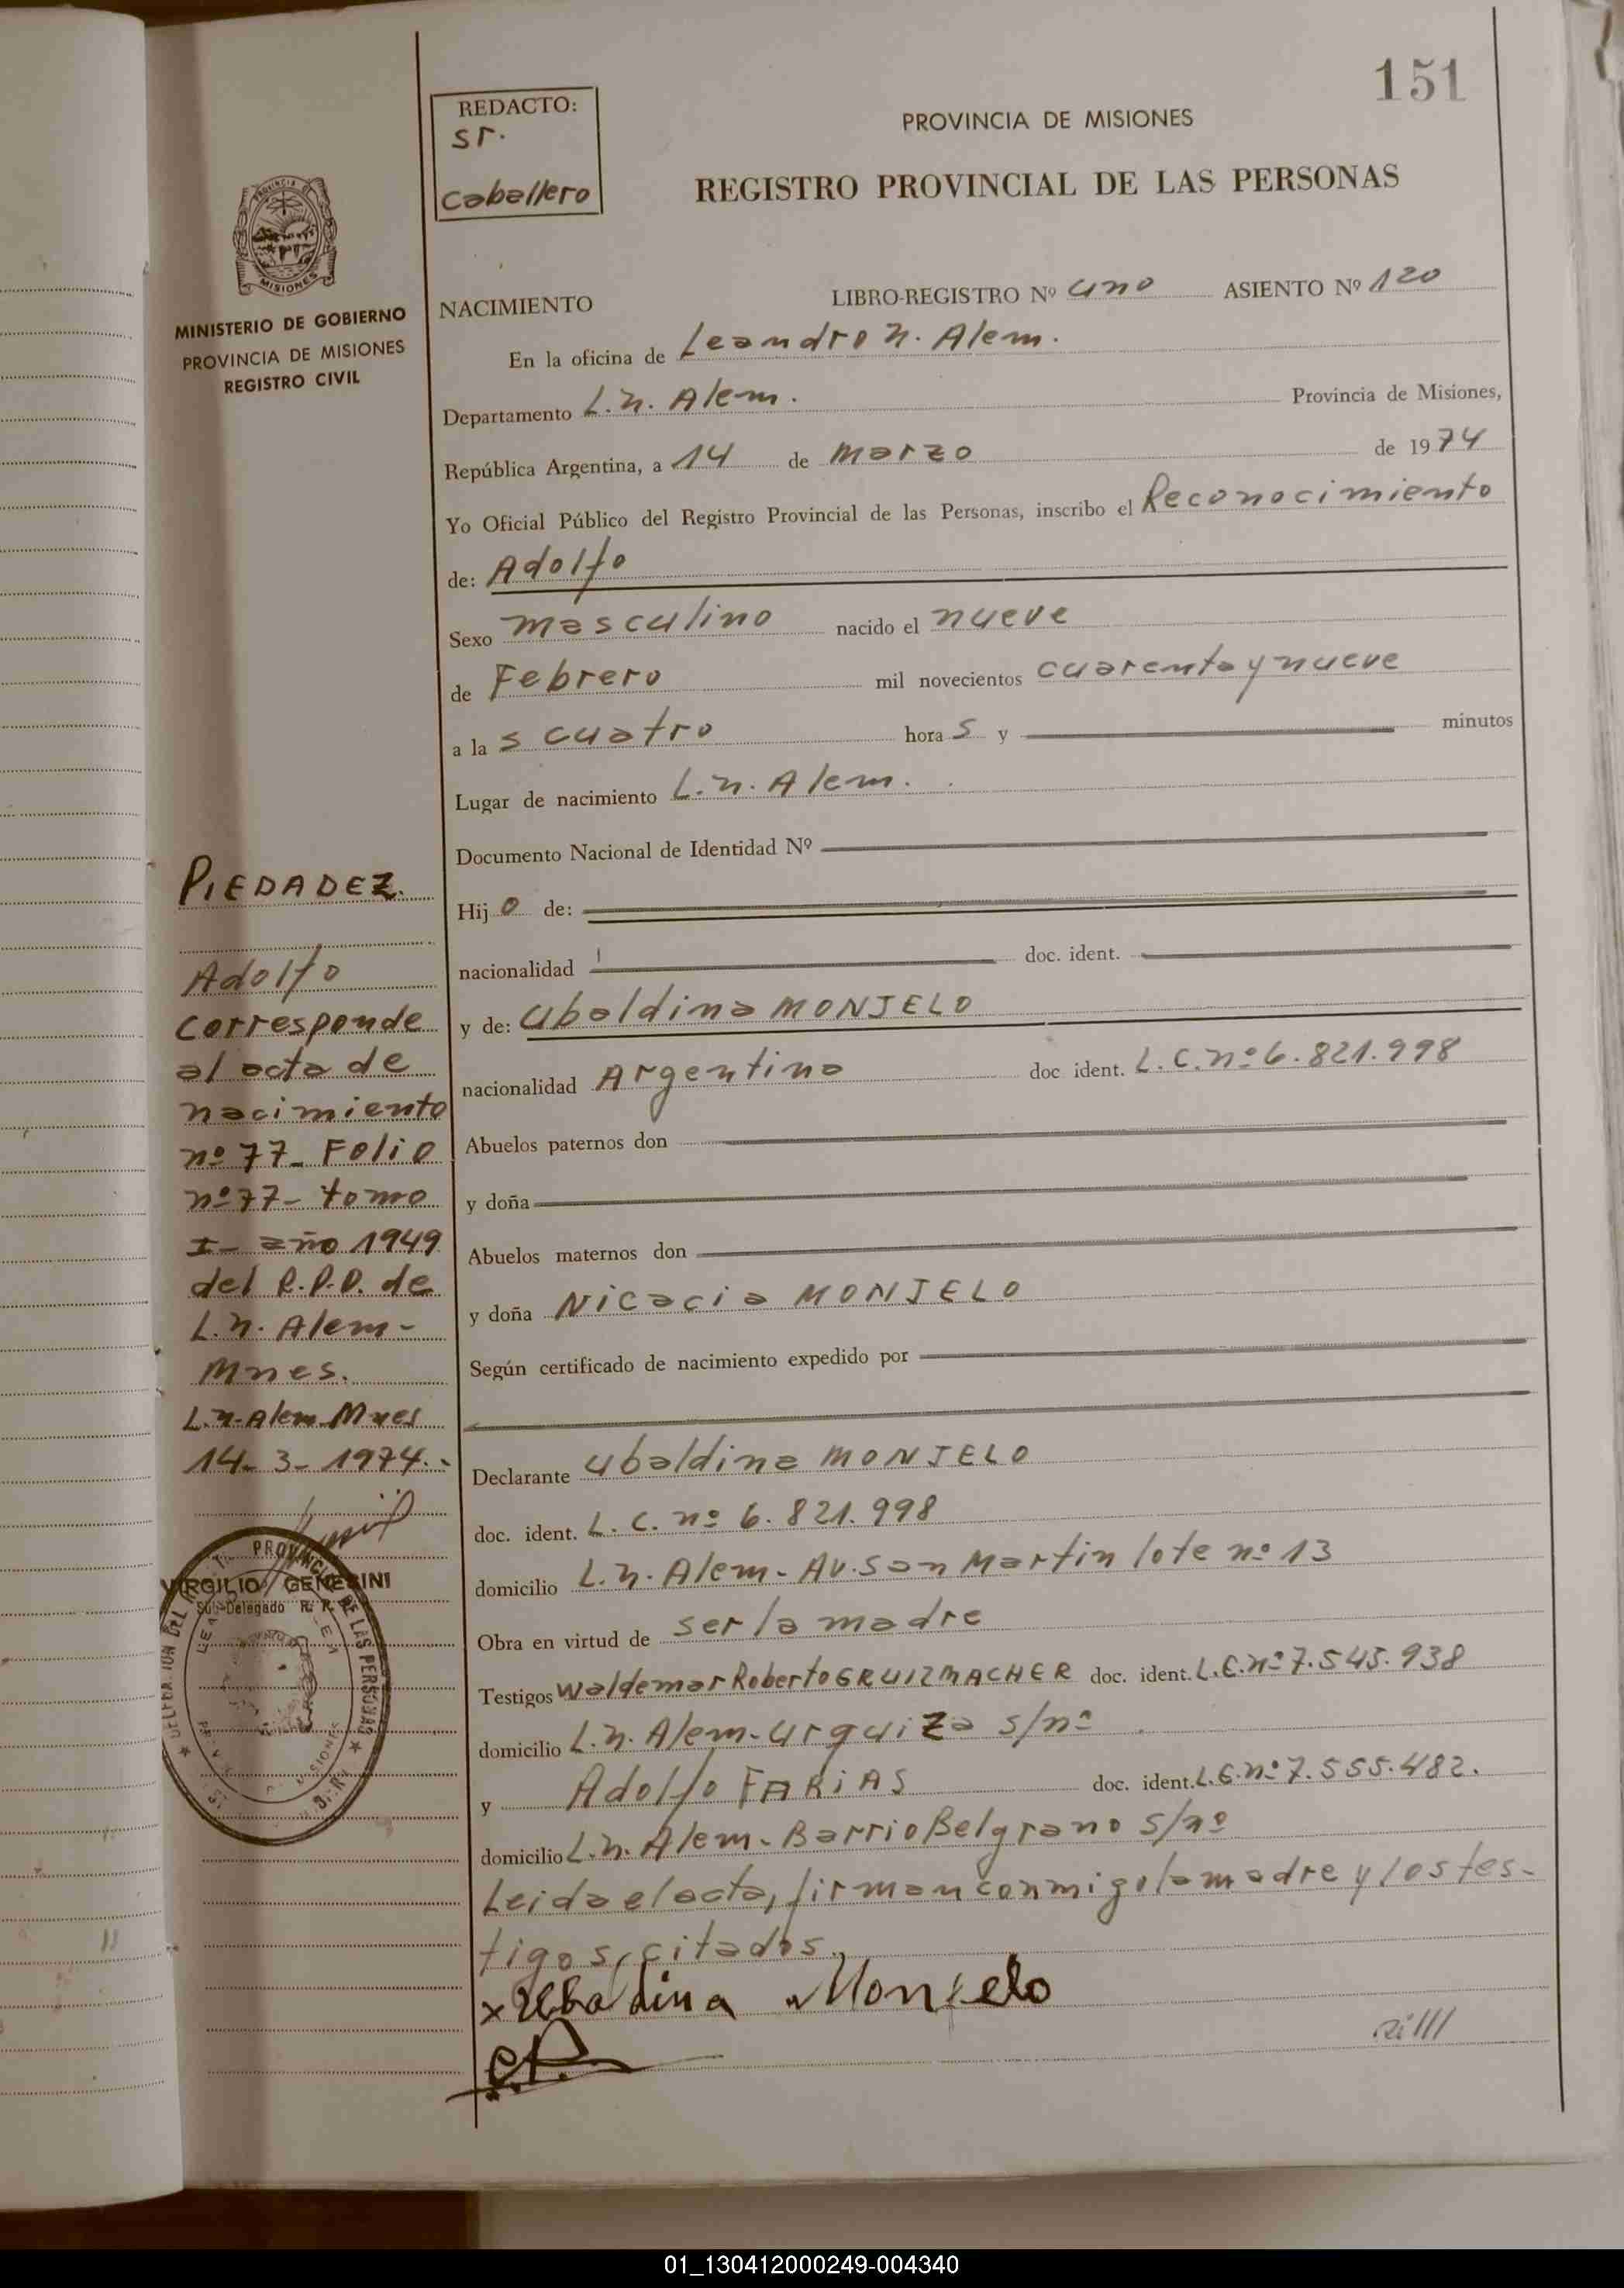 151
REDACTO:
Sr.
Caballero
PROVINCIA DE MISIONES
REGISTRO PROVINCIAL DE LAS PERSONAS
PROVINCIA DE
MISIONES
MINISTERIO DE GOBIERNO
PROVINCIA DE MISIONES
REGISTRO CIVIL
NACIMIENTO LIBRO-REGISTRO Nº uno ASIENTO Nº 120
En la oficina de Leandro N. Alem.
Departamento L.N. Alem. Provincia de Misiones,
República Argentina, a 14 de marzo de 1974
Yo Oficial Público del Registro Provincial de las Personas, inscribo el Reconocimiento
de: Adolfo
Sexo masculino nacido el nueve
de Febrero mil novecientos cuarenta y nueve
a las cuatro horas y minutos
Lugar de nacimiento L.N. Alem.
Documento Nacional de Identidad Nº
Hijo de:
nacionalidad doc. ident.
y de: Ubaldina MONJELO
nacionalidad Argentina doc ident. L.C. nº 6.821.998
Abuelos paternos don
y doña
Abuelos maternos don
y doña Nicacia MONJELO
Según certificado de nacimiento expedido por
Declarante Ubaldina MONJELO
doc. ident. L.C. nº 6.821.998
domicilio L.N. Alem - Av. San Martin lote nº 13
Obra en virtud de ser la madre
Testigos Waldemar Roberto GRUIZMACHER doc. ident. L.E. nº 7.545.938
domicilio L.N. Alem - Urquiza s/nº
y Adolfo FARIAS doc. ident. L.E. nº 7.555.482.
domicilio L.N. Alem - Barrio Belgrano s/nº
Leida el acta, firman conmigo la madre y los tes-
tigos, citados.
x Ubaldina Monjelo
PIEDADEZ.
Adolfo
corresponde
al acta de
nacimiento
nº 77 - Folio
nº 77 - tomo
I - año 1949
del R.P.P. de
L.N. Alem -
Mnes.
L.N. Alem Mnes
14 - 3 - 1974.-
VIRGILIO GENESINI
Sub-Delegado R. P.
01_130412000249-004340